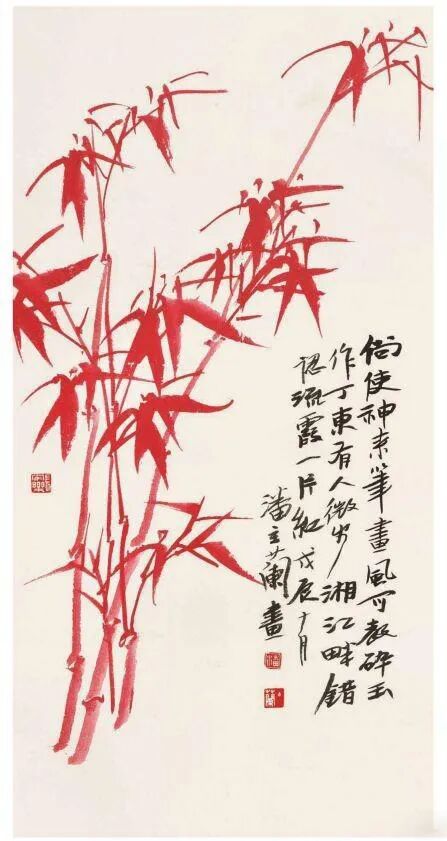 倘使神来筆畫風可教碎玉
作丁東有人微步湘江畔錯
認流霞一片紅戊辰十月
潘主蘭畫